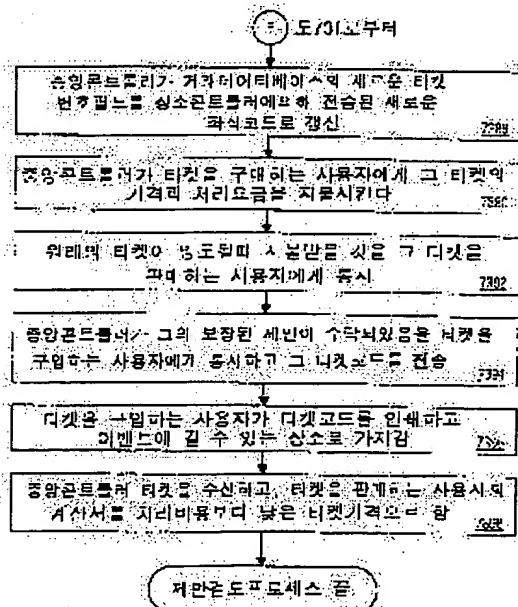 도731로부터
중앙콘트롤러가 거래데이터베이스의 새로운 티켓
번호필드를 장소콘트롤러에 의해 전송된 새로운
좌석코드로 갱신
중앙콘트롤러가 티켓을 구매하는 사용자에게 그 티켓의
가격과 처리요금을 지불시킨다
원래의 티켓이 양도될때 지불받을 것을 그 티켓을
판매하는 사용자에게 통지
7392
중앙콘트롤러가 그의 보장된 제안이 수락되었음을 티켓을
구입하는 사용자에게 통지하고 그 티켓코드를 전송
티켓을 구입하는 사용자가 티켓코드를 인쇄하고
이벤트에 갈 수 있는 장소로 가지감
중앙콘트롤러 티켓을 수신하고, 티켓을 판매하는 사용자의
계산서를 처리비용보다 낮은 티켓가격으로 함
제안검토프로세스 끝